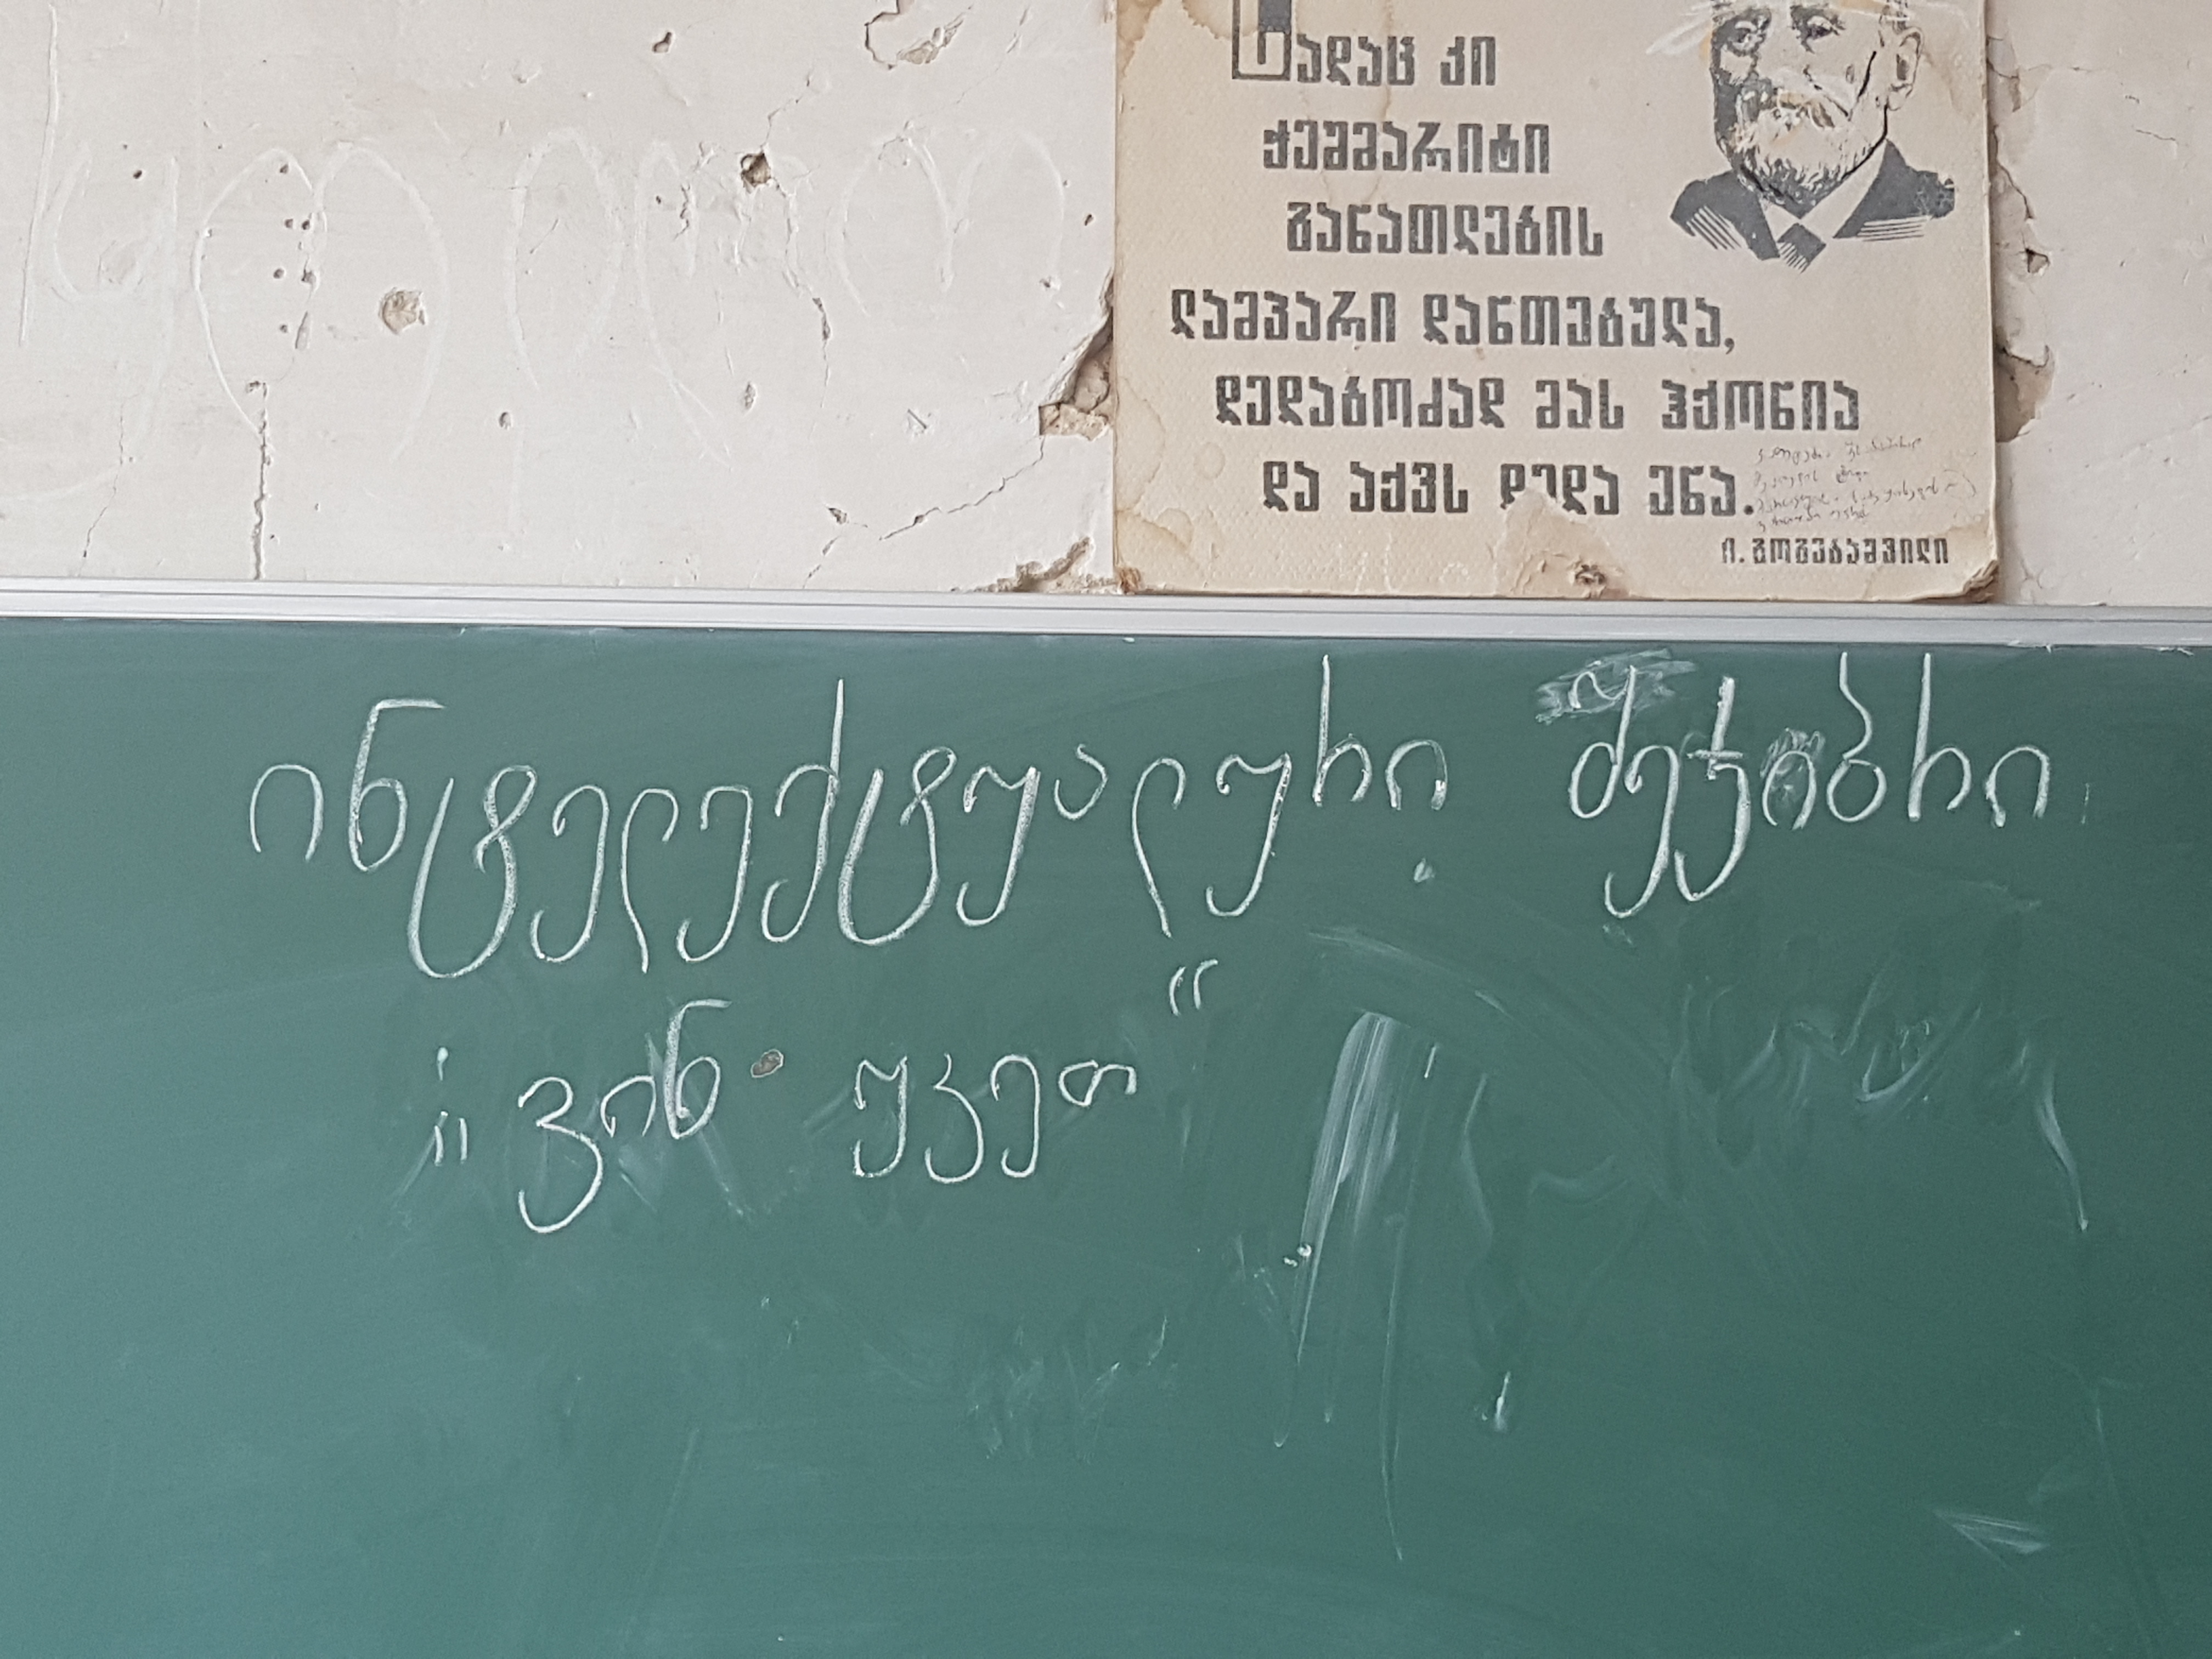 სადაც კი
ჭეშმარიტი
განათლების
ლამპარი დანთებულა,
დედაბოძად მას ჰქონია
და აქვს დედა ენა.
ი. გოგებაშვილი
ინტელექტუალური შეჯიბრი
"ვინ უკეთ"